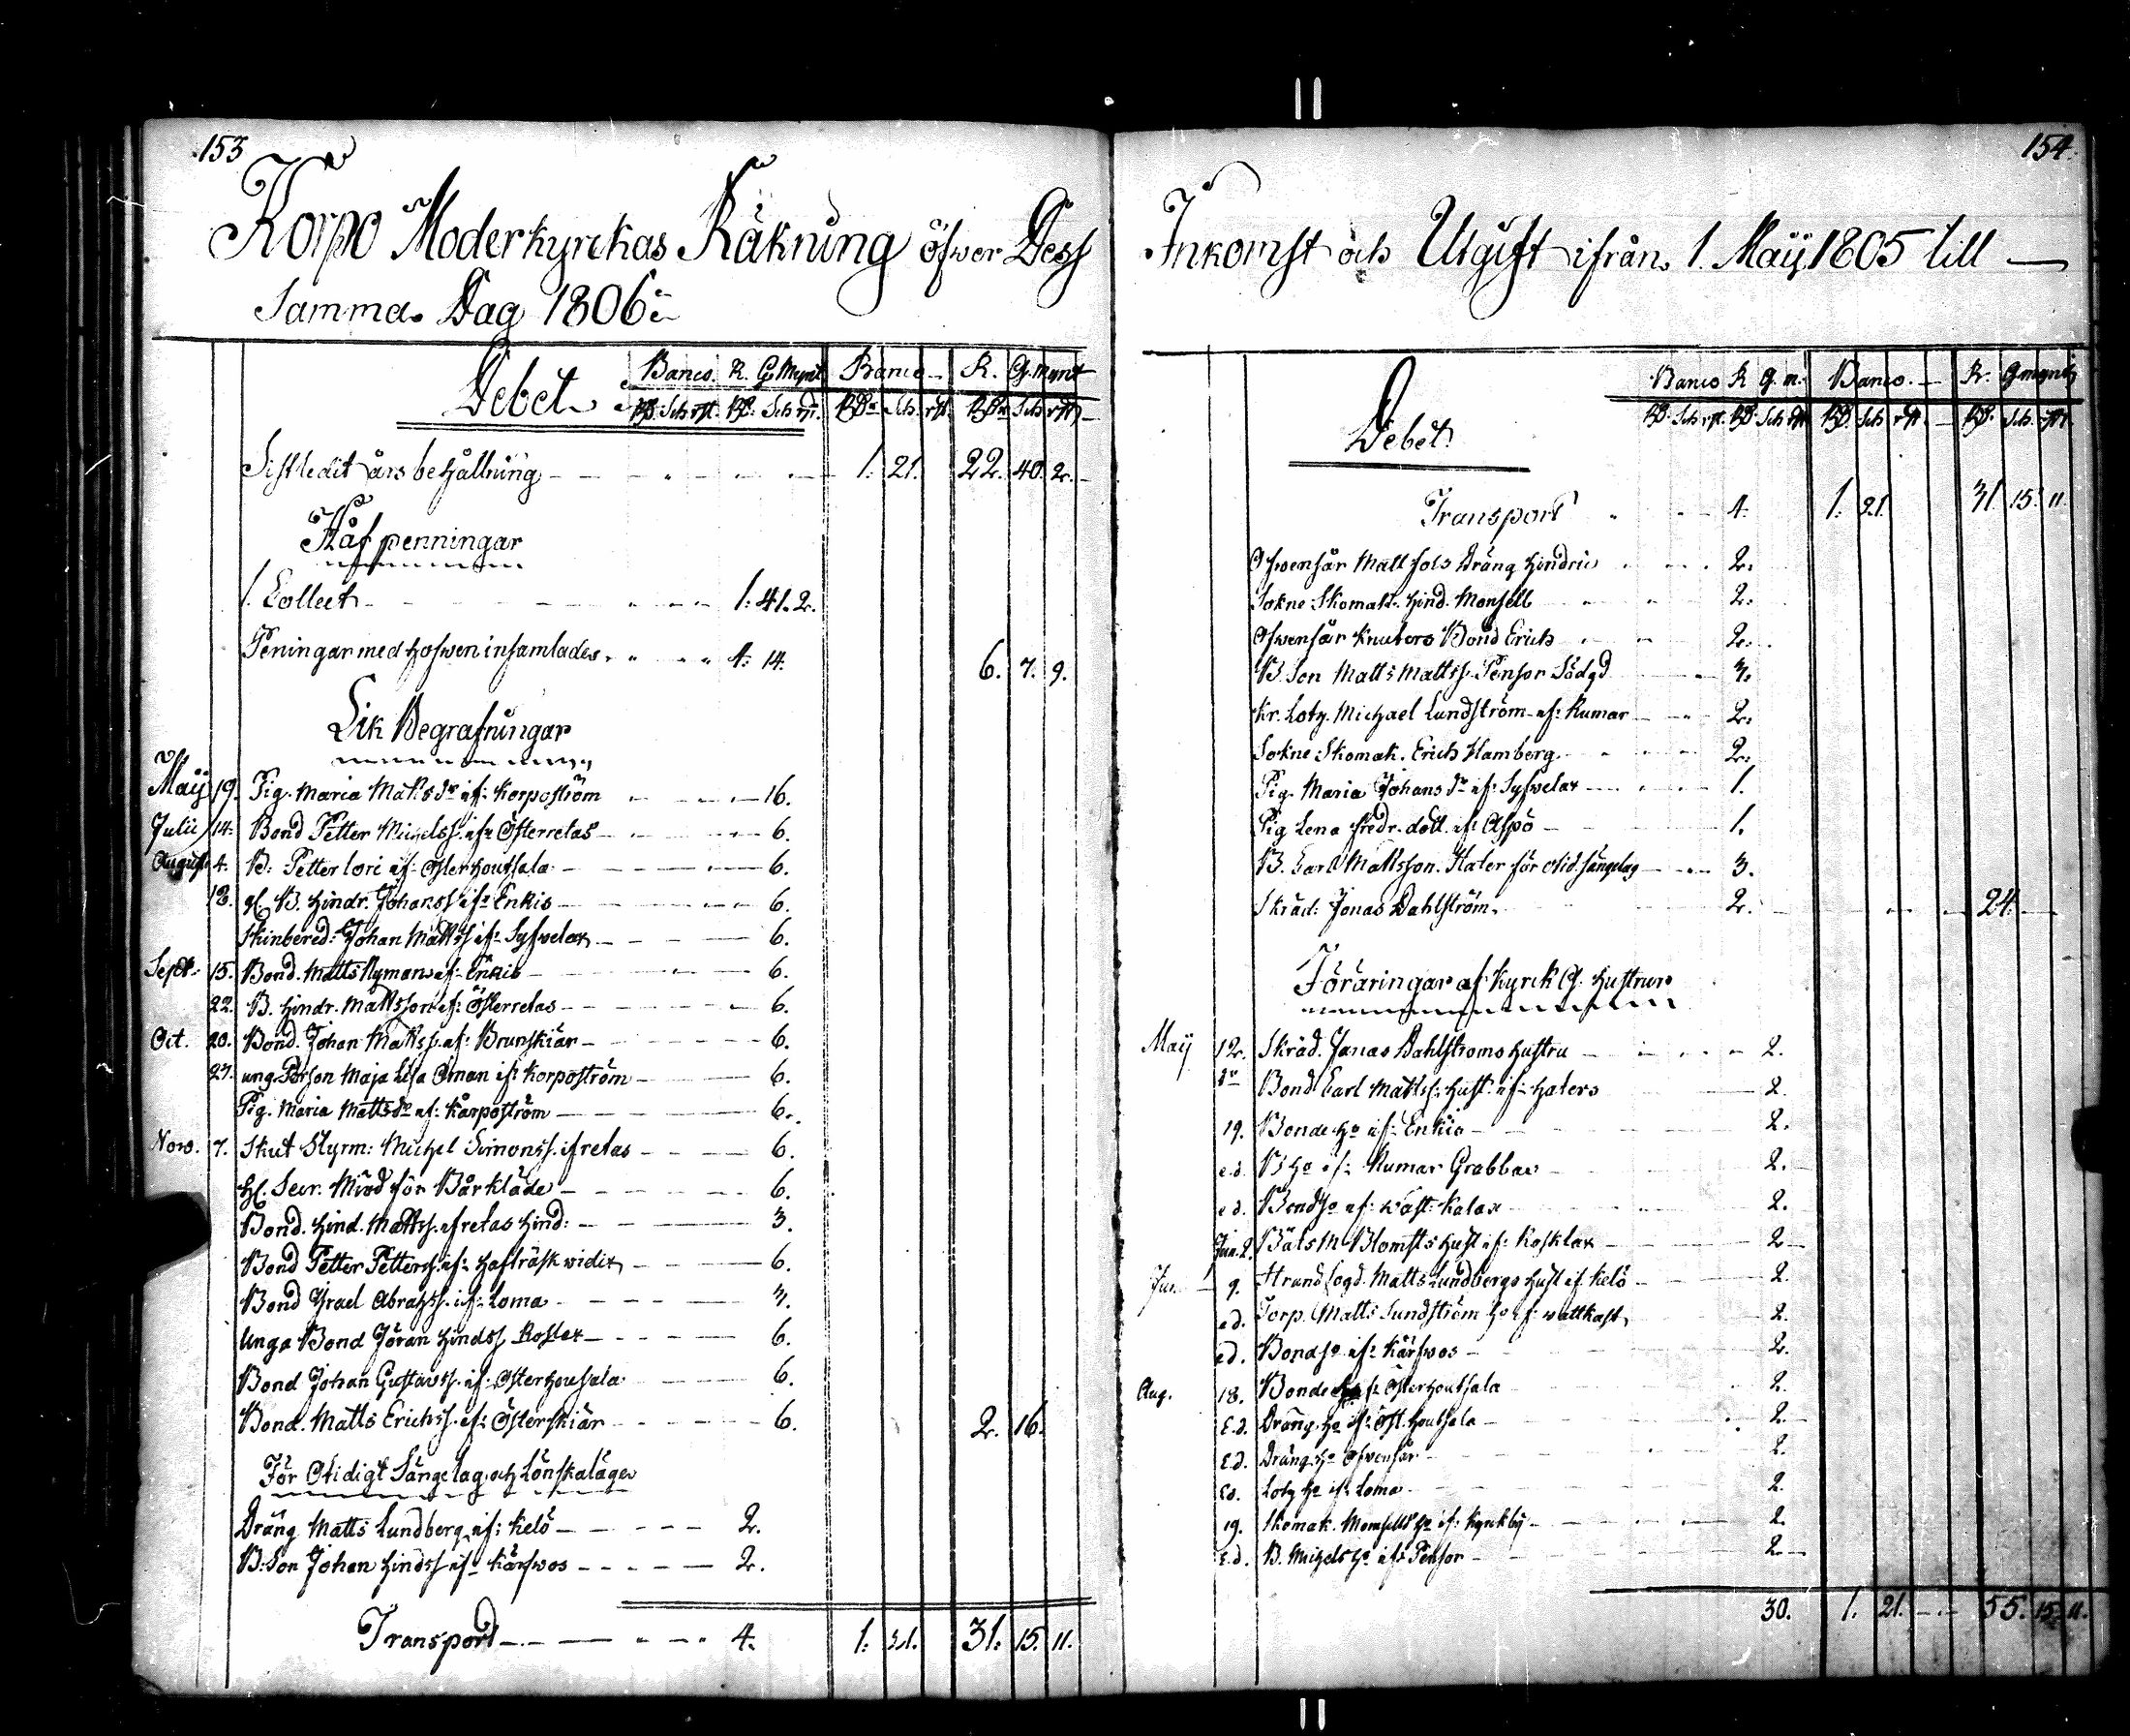 153
Korpo Moderkyrckas Räkning öfwer Dess
Samma Dag 1806
Debet
Banco. R. G. Mynt Banco R. G. mynt
RD: Sch rst. RD: Sch rst. RDr Sch. rst. RDr Sch rst
Sistledit års behållning 1. 21. 22. 40. 2.
Håf penningar
1. Collect 1. 41. 2.
Peningar med Hofwen insamlades 4. 14. 6. 7. 9.
Lik Begrafningar
Maij 19. Pig. Maria Mattsdr if: Korpoström 16.
Julii 14. Bond Petter Michelss. if: Österretas 6.
August 4. B: Petter Lori if: Österhoutsala 6.
18. gl B. Hindr. Johanss if: Enkis 6.
Skinbered: Johan Mattss if: Syfwelax 6.
Sept. 15. Bond. Matts Nyman if: Enkis 6.
22. B. Hindr. Mattsson if: Österretas 6.
Oct. 20. Bond. Johan Mattss. if: Brunskiär 6.
27. ung Person Maja Lisa Öman if: Korpoström 6.
Pig. Maria Mattsdr if: Kårpoström 6.
Now. 7. Skut Styrm: Michel Simonss. if retas 6.
Hl. Secr. för Bårkläde 6.
Bond. Hind. Mattss. if retas Hind: 3.
Bond Petter Petterss. if: Hafträsk widix 6.
Bond Israel Abrahss. if: Loma 3.
Unga Bond Jöran Hindss Roslax 6.
Bond Johan Gustavss. if: Österhoutsala 6.
Bond. Matts Erichss. if: Österskiär 6. 2. 16.
För Otidigt Sängelag och Lönskaläge
Dräng Matts Lundberg if: Kelö 2.
B: Son Johan Hindss if: Kärfwos 2.
Transport 4. 1. 21. 31. 15. 11.
154.
Inkomst och Utgift ifrån 1. Maij 1805 till
Debet
Banco R G. m. Banco. R. G mynt
RD. Sch rst. RD: Sch rst RD. Sch rst. RD. Sch. rst.
Transport 4. 1. 21. 31. 15. 11.
Ofwensår Matt fols Dräng Hindric 2.
Sokne Skomak. Hind. Monsell 2.
Ofwensår Knutors Bond Erich 2.
B. Son Matts Mattss. Pensor Södgd 3.
Kr. Lotz. Michael Lundström if: Rumar 2.
Sokne Skomak. Erich Hamberg 2.
Pig. Maria Johansdr if: Syfwelax 1.
Pig Lena fredr. dott. if: Aspö 1.
B. Carl Mattsson. Hater för otid. sängelag 3.
Skräd: Jonas Dahlström 2. 24.
Föräringar af Kyrck G. Hustrur
May 12. Skräd. Jonas Dahlströms Hustru 2.
dr Bond Carl Mattss: Hust. if: Haters 2.
19. Bonde Ho if: Enkis 2.
e.d. B Ho if: Rumar Grabbas 2.
e.d. Bond Ho if: Wäst: Kalax 2.
Jun. 2. Båtsm Blomsts Hust if: Kosklax 2
Jun. 9. Strandfogd. Matts Lundbergs Hust if Kelö 2.
e.d. Torp. Matts Sundström Ho if: Wattkast 2.
e.d. Bond Ho if: Kärfwos 2.
Aug. 18. Bonde Ho if: Österhoutsala 2.
E.d. Dräng. Ho if: Öst. Houtsala 2.
E.d. Dräng Ho Ofwensår 2.
Ed. Lotz Ho if: Loma 2.
19. Skomak. Monsells Ho if: Kyrckby 2.
E.d. B. Michels Ho if: Pensor 2
30. 1. 21. 55. 15. 11.